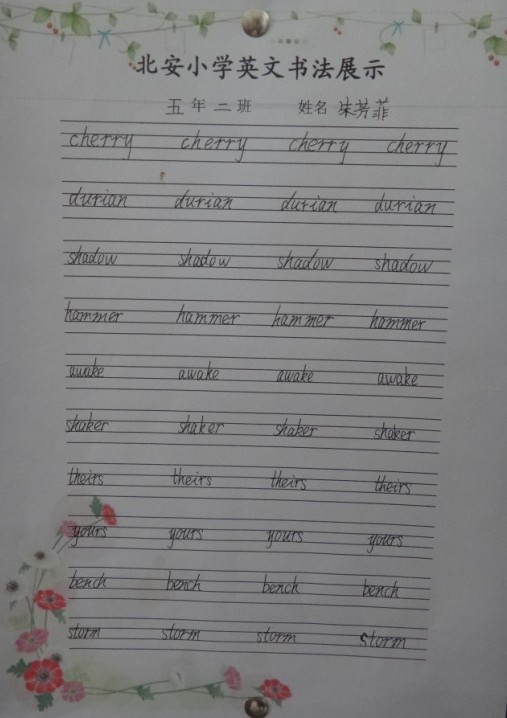 北安小学英文书法展示
五年二班 姓名 朱芳菲
cherry cherry cherry cherry
durian durian durian durian
shadow shadow shadow shadow
hammer hammer hammer hammer
awake awake awake awake
shaker shaker shaker shaker
theirs theirs theirs theirs
yours yours yours yours
bench bench bench bench
storm storm storm storm